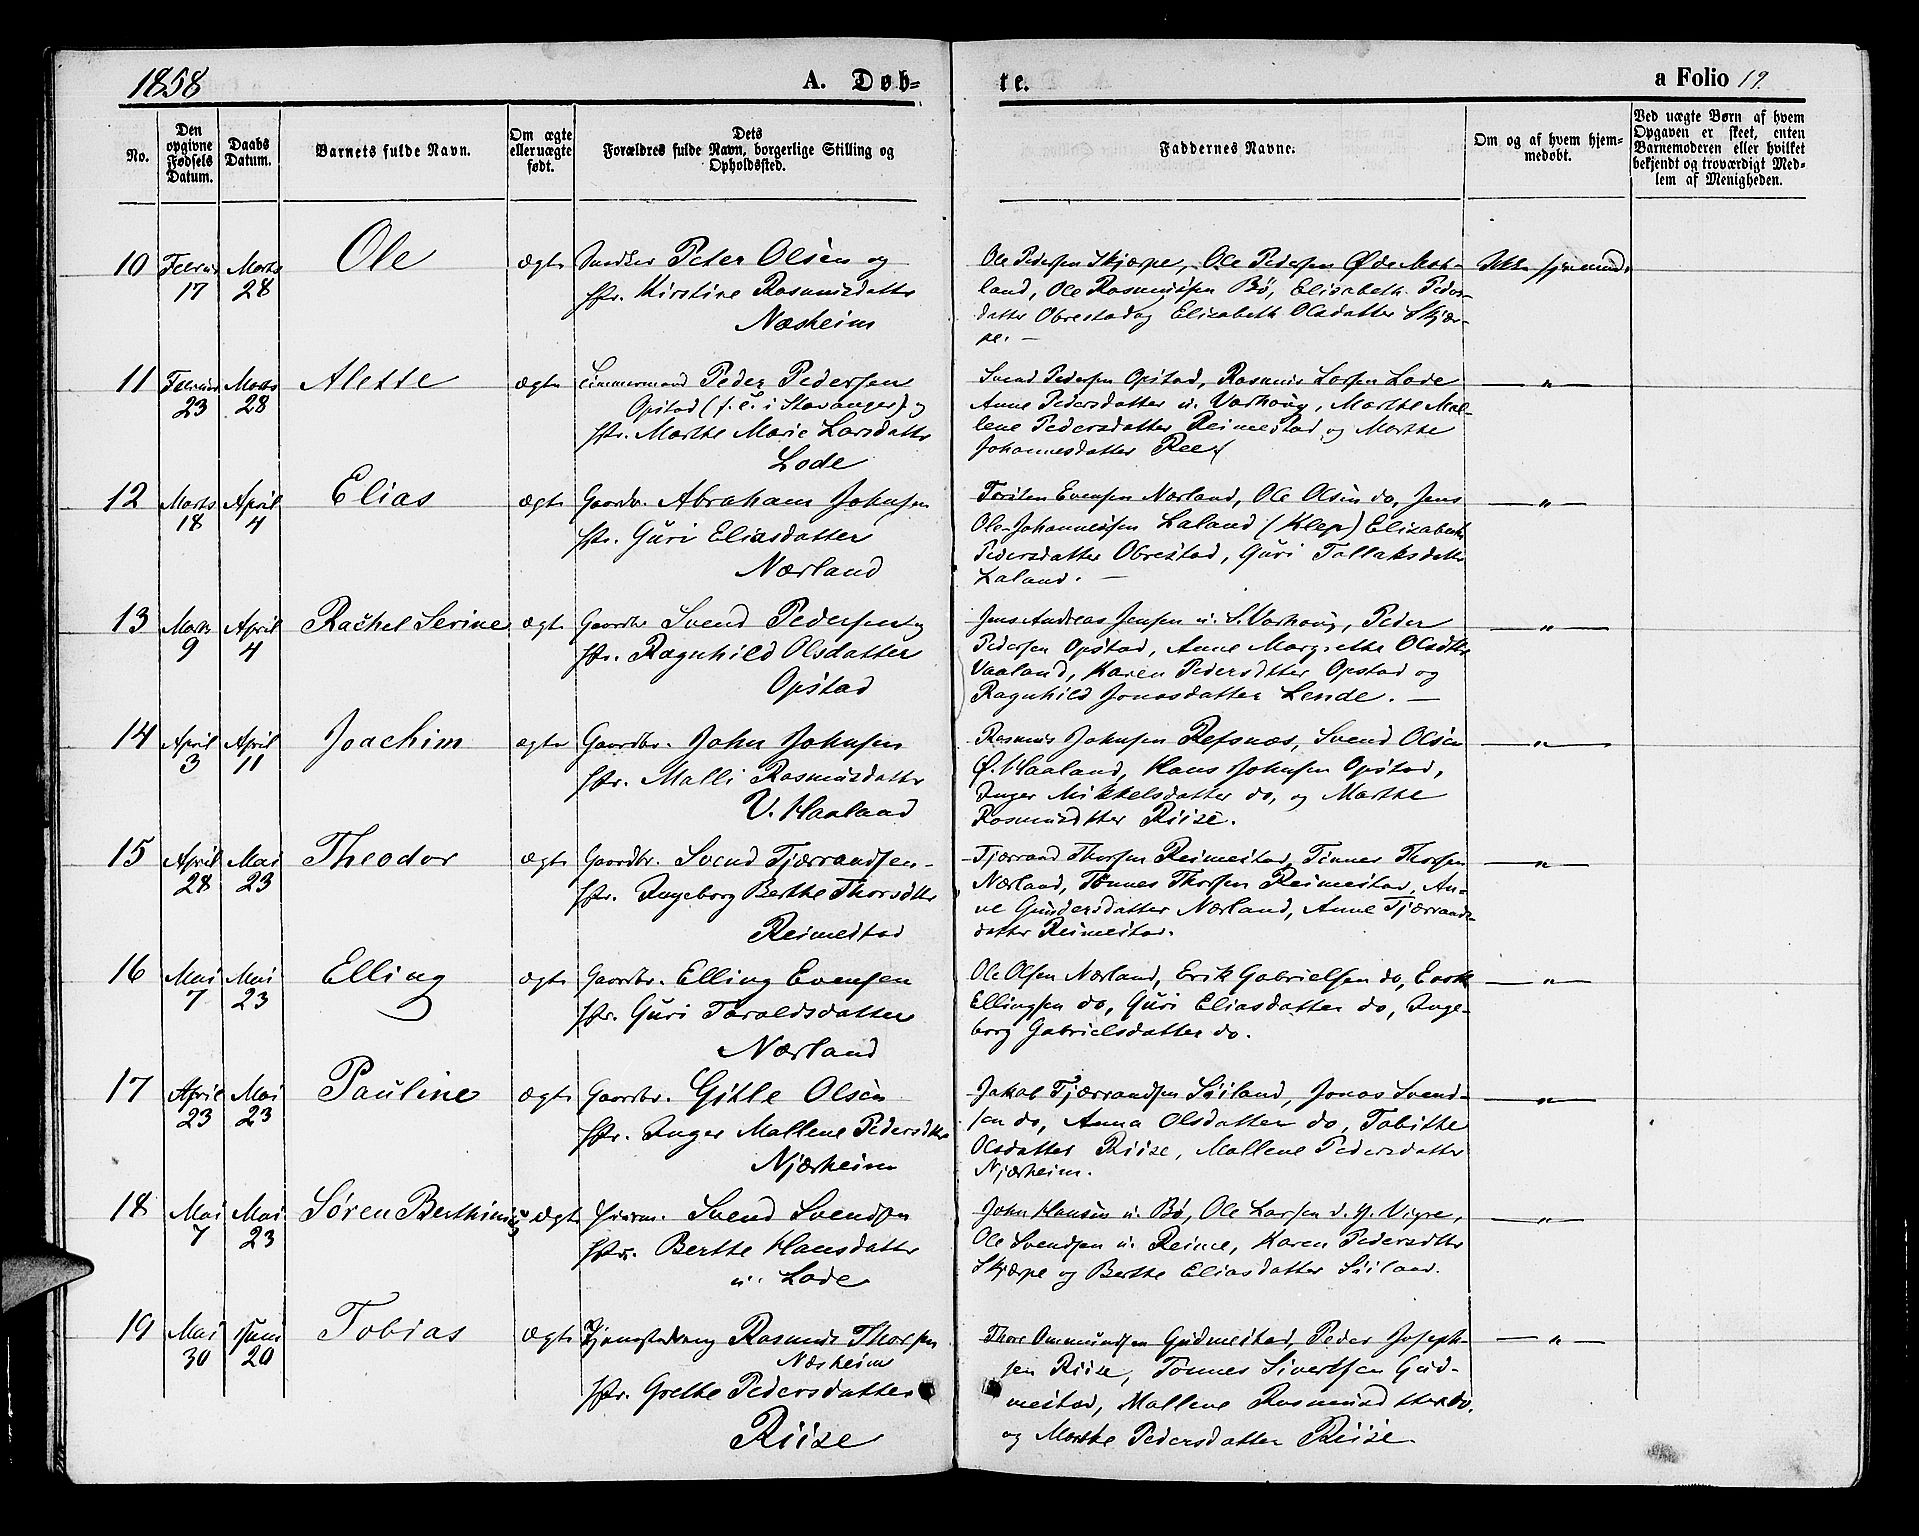 1858
A. Døb-
te.
a Folio 19.
No.
Den
opgivne
Fødsels
Datum.
Daabs
Datum.
Barnets fulde Navn.
Om ægte
eller uægte
født.
Dets
Forældres fulde Navn, borgerlige Stilling og
Opholdssted.
Faddernes Navne.
Om og af hvem hjem-
medøbt.
Ved uægte Børn af hvem
Opgaven er skeet, enten
Barnemoderen eller hvilket
bekjendt og troværdigt Med-
lem af Menigheden.
10 Februar 17 Marts 28 Ole ægte Snedker Peter Olsen og
Hstr. Kirstine Rasmusdatter
Næsheim
Ole Pedersen Skjærpe, Ole Pedersen Øde Mat-
land, Ole Rasmussen Bø, Elisabeth Peders-
datter Obrestad og Elisabeth Olsdatter Skjær-
pe. —
Ikke hjemmed.
11 Februar 23 Marts 28 Alette ægte Timmermand Peder Pedersen
Opstad (f. E. i Stavanger) og
Hstr. Marthe Marie Larsdatter
Lode
Svend Pedersen Opstad, Rasmus Larsen Lode
Anne Pedersdatter u. Varhoug, Marthe Mal-
lene Pedersdatter Reimestad og Marthe
Johannesdatter Ree
— „ —
12 Marts 18 April 4 Elias ægte Gaardbr. Abraham Johnsen
Hstr. Guri Eliasdatter
Nærland
Torsten Evensen Nærland, Ole Olsen do, Jens
Ole Johannessen Laland (Klep) Elisabeth
Pedersdatter Obrestad, Guri Tollaksdatter
Laland. —
— „ —
13 Marts 9 April 4 Rachel Serine ægte Gaardbr Svend Pedersen og
Hstr. Ragnhild Olsdatter
Opstad
Jens Andreas Jensen u. S. Varhoug, Peder
Pedersen Opstad, Anne Margrethe Olsdtter
Vaaland, Karen Pedersdtter Opstad og
Ragnhild Jonasdatter Lende. —
— „ —
14 April 3 April 11 Joachim ægte Gaardbr. John Johnsen
Hstr. Malli Rasmusdatter
V. Haaland
Rasmus Johnsen Refsnæs, Svend Olsen
Ø. Haaland, Hans Johnsen Opstad,
Inger Mikkelsdatter do, og Marthe
Rasmusdtter Riise.
— „ —
15 April 28 Mai 23 Theodor ægte Gaardbr. Svend Tjærrandsen
Hstr. Ingeborg Berthe Thorsdtter
Reimestad
Tjærrand Thorsen Reimestad, Tønnes Thorsen
Nærland, Tønnes Thorsen Reimestad, An-
ne Gundersdatter Nærland, Anne Tjærrands-
datter Reimestad.
— „ —
16 Mai 7 Mai 23 Elling ægte Gaardbr. Elling Evensen
Hstr. Guri Taraldsdatter
Nærland
Ole Olsen Nærland, Erik Gabrielsen do,
Ellingsen do, Guri Eliasdatter do, Inge-
borg Gabrielsdatter do.
— „ —
17 April 23 Mai 23 Pauline ægte Gaardbr. Gitle Olsen
Hstr. Inger Mallene Pedersdtter
Njærheim
Jakob Tjærrandsen Søiland, Jonas Svend-
sen do, Anna Olsdatter do, Tabithe
Olsdatter Riise, Mallene Pedersdatter
Njærheim.
— „ —
18 Mai 7 Mai 23 Søren Berthinius ægte Huusm. Svend Svendsen
Hstr. Berthe Hansdatter
u. Lode
John Hansen u. Bø, Ole Larsen d. y. Vigre,
Ole Svendsen u. Reime, Karen Pedersdtter
Skjærpe og Berthe Eliasdatter Søiland.
— „ —
19 Mai 30 Juni 20 Tobias ægte Rasmus Thorsen
Næsheim
Hstr. Grethe Pedersdatter
Riise
Thore Ommundsen Gudmestad, Peder Joseph-
sen Riise, Tønnes Sivertsen Gud-
mestad, Mallene Rasmusdtter do,
og Marthe Pedersdatter Riise
— „ —